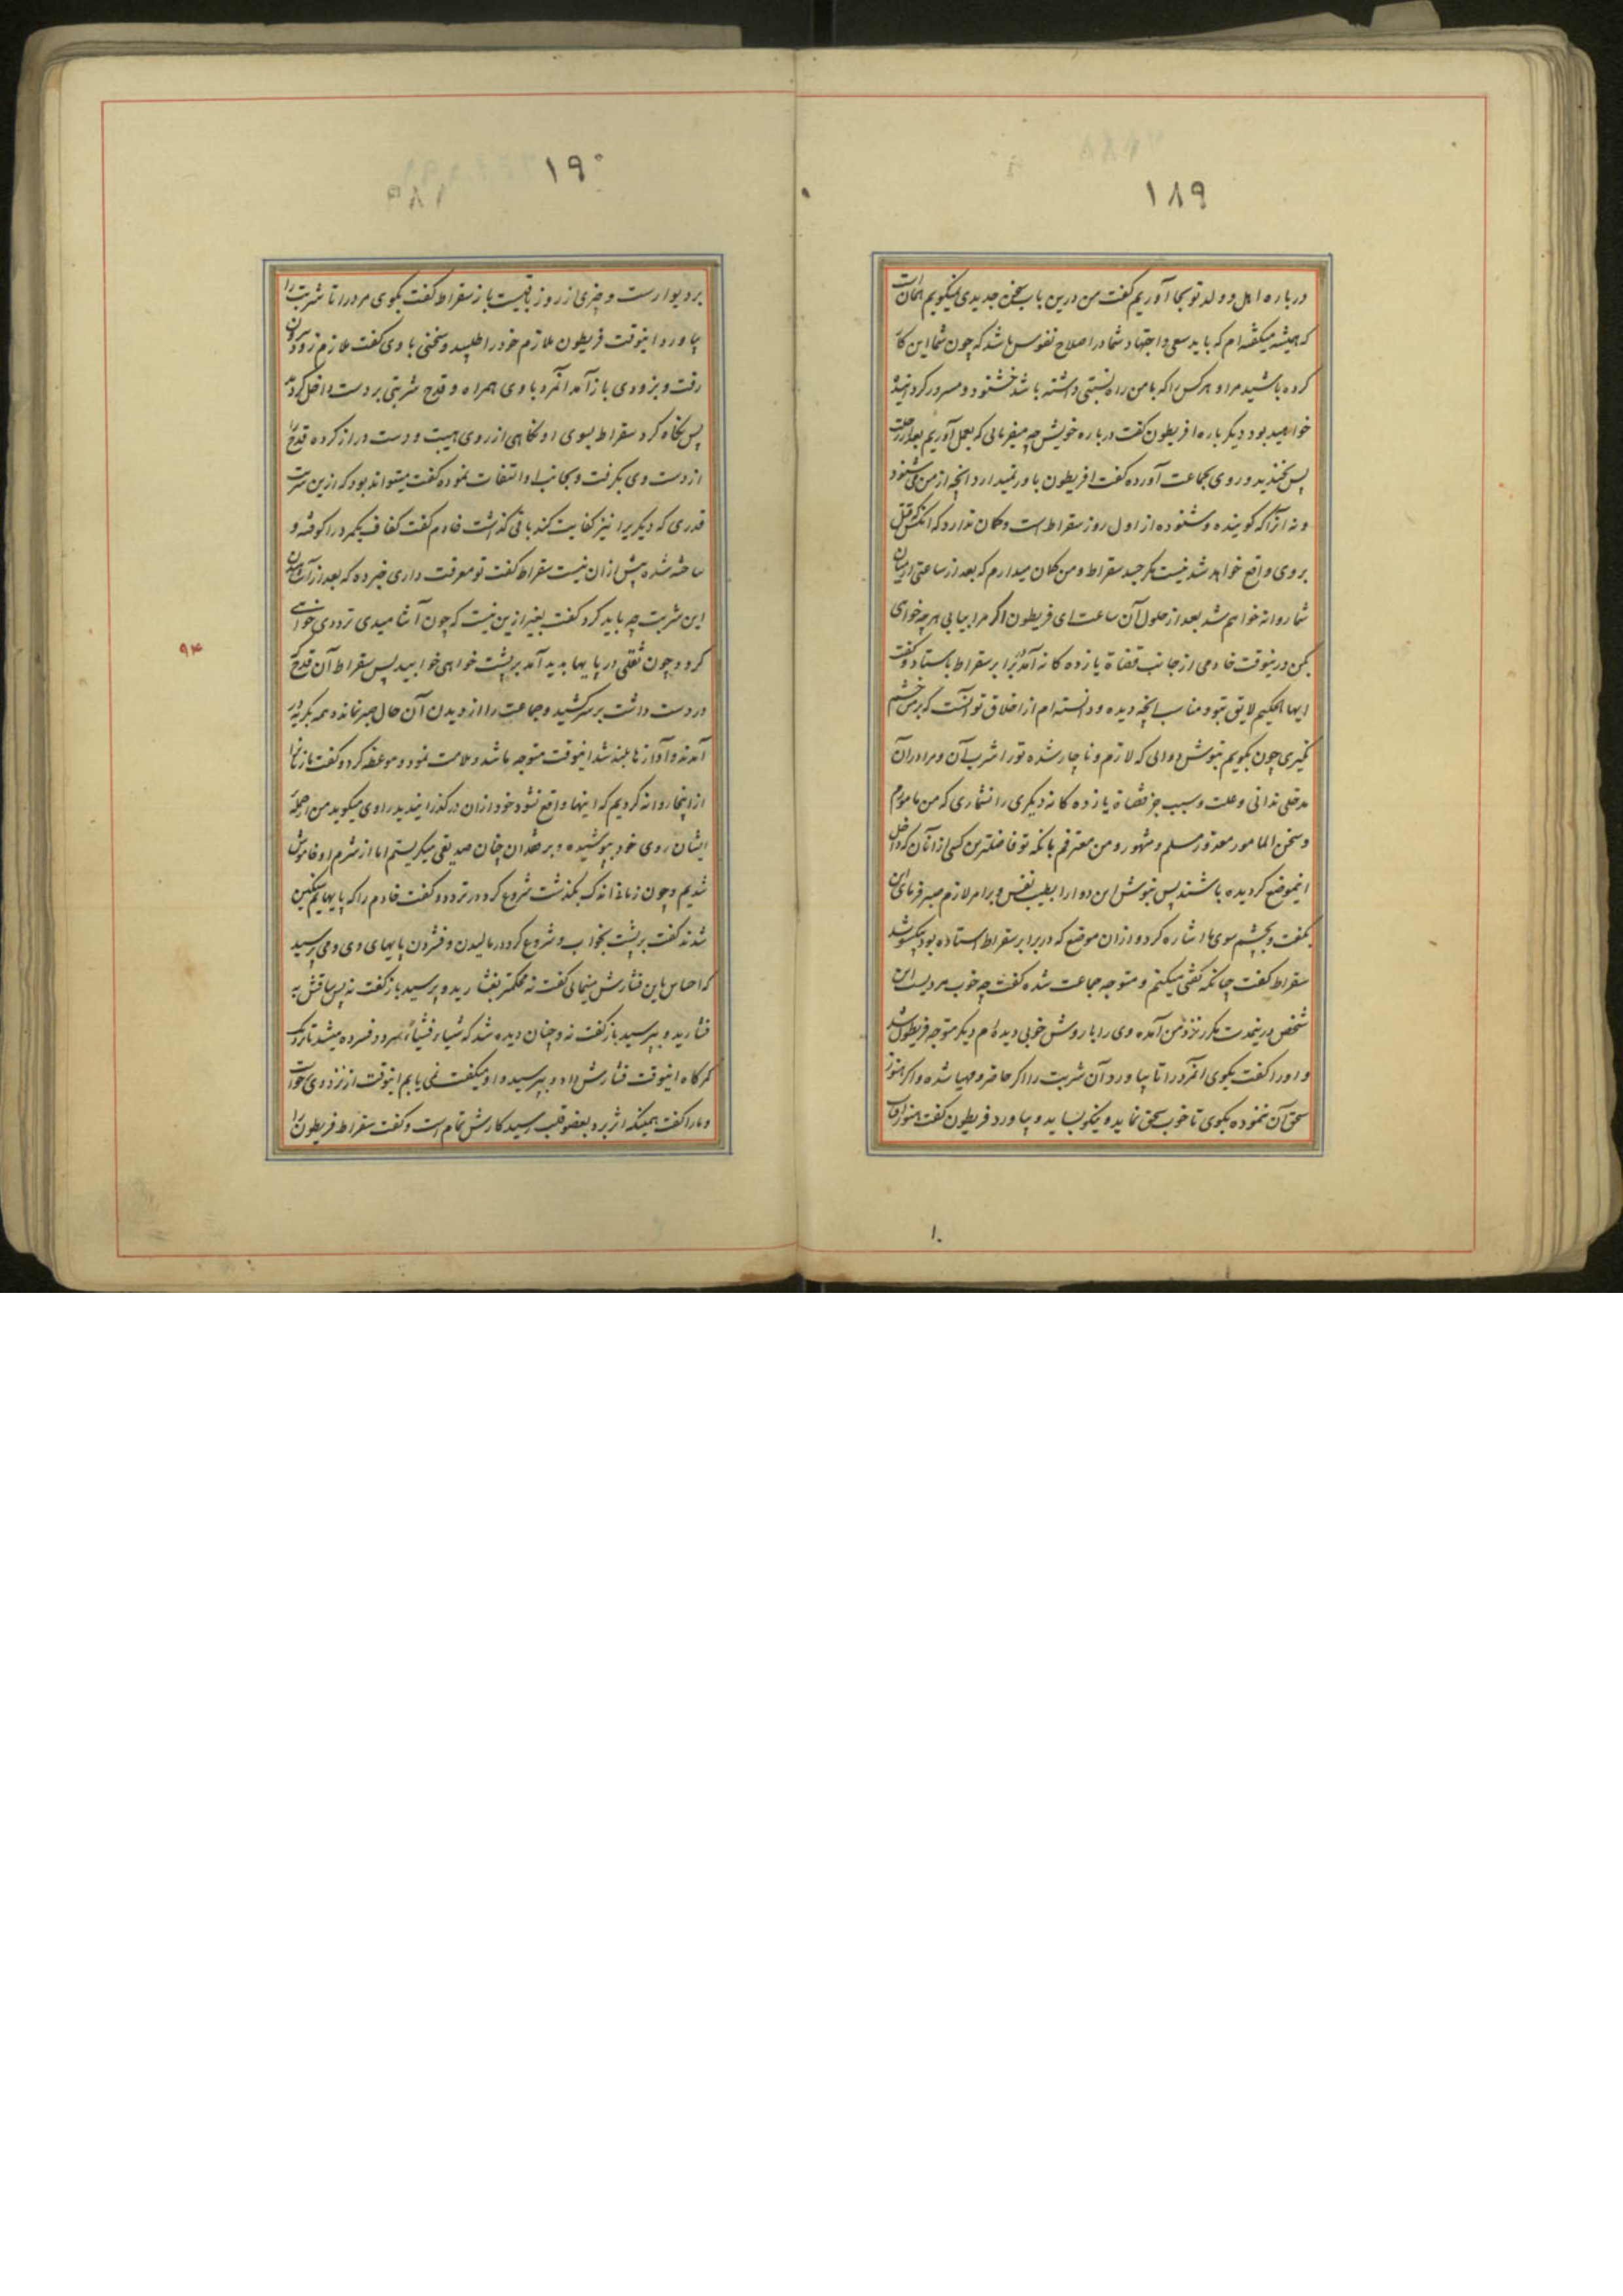 ۱۸۹
درباره اهل و ولد تو بجا آوریم گفت من درین باب سخن جدیدی نمیگویم همان است
که همیشه میگفته‌ام که باید سعی و اجتهاد شما در اصلاح نفوس باشد که چون شما این کار
کرده باشید مرا و هر کس را که با من راه نسبتی داشته باشد خشنود و مسرور گردانیده
خواهید بود دیگر باره افریطون گفت درباره خویش چه میفرمائی که بعمل آوریم بعد از رحلت
پس بخندید و روی بجماعت آورده گفت افریطون باور نمیدارد انچه از من می شنود
و نه از آنکه گوینده و شنوده از اول روز سقراط است و گمان ندارد که انکس که قتل
بر وی واقع خواهد شد نیست مگر جسد سقراط و من گمان میدارم که بعد از ساعتی از میان
شما روانه خواهم شد بعد از حلول آن ساعت ای فریطون اگر مرا بیابی هر چه خواهی
بکن درینوقت خادمی از جانب قضاة یازده گانه آمد برابر سقراط باستاد و گفت
ایها الحکیم لایق بتو و مناسب انچه دیده و دانسته‌ام از اخلاق تو آنست که بر من خشم
نگیری چون بگویم بنوش دوائی که لازم و ناچار شده تو را شرب آن و مرا در آن
مدخلی ندانی و علت و سبب جز قضاة یازده گانه دیگری را نشماری که من مامورم
و سخن المامور معذور مسلم و مشهور و من معترفم بانکه تو فاضلترین کسی از انان که داخل
اینموضع گردیده باشند پس بنوش این دوا را بطیب نفس و بر امر لازم صبر فرمای این
بگفت و بچشم سوی ما اشاره کرد و از ان موضع که در برابر سقراط استاده بود یکسو شد
سقراط گفت چنانکه گفتی میکنم و متوجه جماعت شده گفت چه خوب مردیست این
شخص درینمدت مکرر نزد من آمده وی را با روش خوبی دیده‌ام دیگر متوجه فریطون شد
و او را گفت بگوی انمرد را تا بیاورد آن شربت را اگر حاضر و مهیا شده و اگر هنوز
سحق آن ننموده بگوی تا خوب سحق نماید و نیکو بساید و بیاورد فریطون گفت هنوز آفتاب
۱۹۰
بر دیوارست و چیزی از روز باقیست باز سقراط گفت بگوی مرد را تا شربت را
بیاورد اینوقت فریطون ملازم خود را طلبید و سخنی با وی گفت ملازم زود بیرون
رفت و بزودی باز آمد انمرد با وی همراه و قدح شربتی بر دست داخل گردید
پس نگاه کرد سقراط بسوی او نگاهی از روی هیبت و دست دراز کرده قدح را
از دست وی بگرفت و بجانب او التفات نموده گفت میتواند بود که ازین شربت
قدری که دیگریرا نیز کفایت کند باقی گذاشت خادم گفت کفاف یکمرد را کوفته و
ساخته شده بیش ازان نیست سقراط گفت تو معرفت داری خبر ده که بعد از آشامیدن
این شربت چه باید کرد گفت بغیر ازین نیست که چون آشامیدی ترددی خواهی
کرد و چون ثقلی در پایها بدید آمد بر پشت خواهی خوابید پس سقراط آن قدح که
در دست داشت بر سر کشید و جماعت را از دیدن آن حال صبر نماند و همه بگریه در
آمدند و آوازها بلند شد اینوقت متوجه ما شد و ملامت نمود و موعظه کرد و گفت ما زنان را
از اینجا روانه کردیم که اینها واقع نشود خود ازان در گذرانیدید راوی میگوید من از جمله
ایشان روی خود بپوشیده و بر فقدان چنان صدیقی میگریستم اما از شرم او خاموش
شدیم و چون زمانی اندک بگذشت شروع کرد در تردد و گفت خادم را که پایهایم سنگین
شدند گفت بر پشت بخواب و شروع کرد در مالیدن و فشردن پایهای وی و می پرسید
که احساس باین فشارش مینمائی گفت نه محکمتر بفشارید و پرسید باز گفت نه پس ساقش به
فشارید و بپرسید باز گفت نه و چنان دیده شد که شیئا فشیئا بمرد و فسرده میشد تا نزدیک
کمرگاه اینوقت فشارش داد و بپرسید و او میگفت نمی یابم اینوقت از نزد وی خواست
و ما را گفت همینکه اثر برد بعضو قلب رسید کارش تمام است و گفت سقراط فریطون را
۹۴